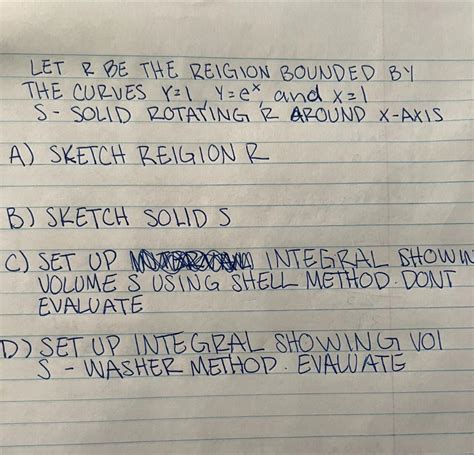 LET R BE THE REIGION BOUNDED BY
THE CURVES Y=1, Y=eˣ, and x=1
S - SOLID ROTATING R AROUND X-AXIS
A) SKETCH REIGION R
B) SKETCH SOLID S
C) SET UP INTEGRAL SHOWIN
VOLUME S USING SHELL METHOD. DONT
EVALUATE
D) SET UP INTEGRAL SHOWING VOl
S - WASHER METHOD. EVALUATE